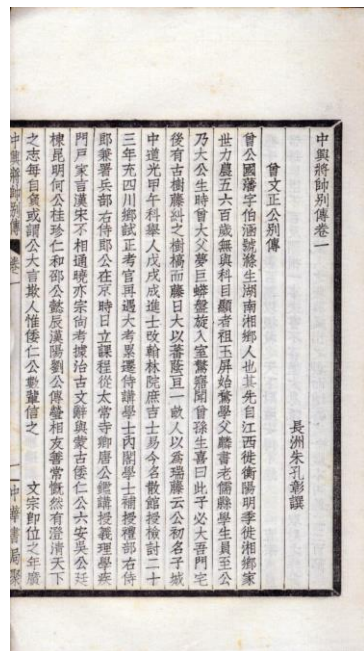 中興將帥別傳卷一
長洲朱孔彰譔
曾文正公別傳
曾公國藩字伯涵號滌生湖南湘鄉人也其先自江西徙衡陽明季徙湘鄉家
世力農五六百歲無與科目顯者祖玉屏始騖學父麟書老儒縣學生員至公
乃大公生時曾大父夢巨蟒盤旋入室驚寤聞曾孫生喜曰此子必大吾門宅
後有古樹藤糾之樹槁而藤日大以蕃蔭亘一畝人以為瑞藤云公初名子城
中道光甲午科舉人戊戌成進士改翰林院庶吉士易今名散館授檢討二十
三年充四川鄉試正考官再遇大考累遷侍講學士內閣學士補授禮部右侍
郎兼署兵部右侍郎公在京時日立課程從太常寺卿唐公鑑講授義理學疾
門戶家言漢宋不相通曉亦宗尙考據治古文辭與蒙古倭仁公六安吳公廷
棟昆明何公桂珍仁和邵公懿辰漢陽劉公傳瑩相友善常慨然有澄清天下
之志每自負或謂公大言欺人惟倭仁公數輩信之　文宗卽位之年廣
中興將帥別傳 卷一 一 中華書局聚